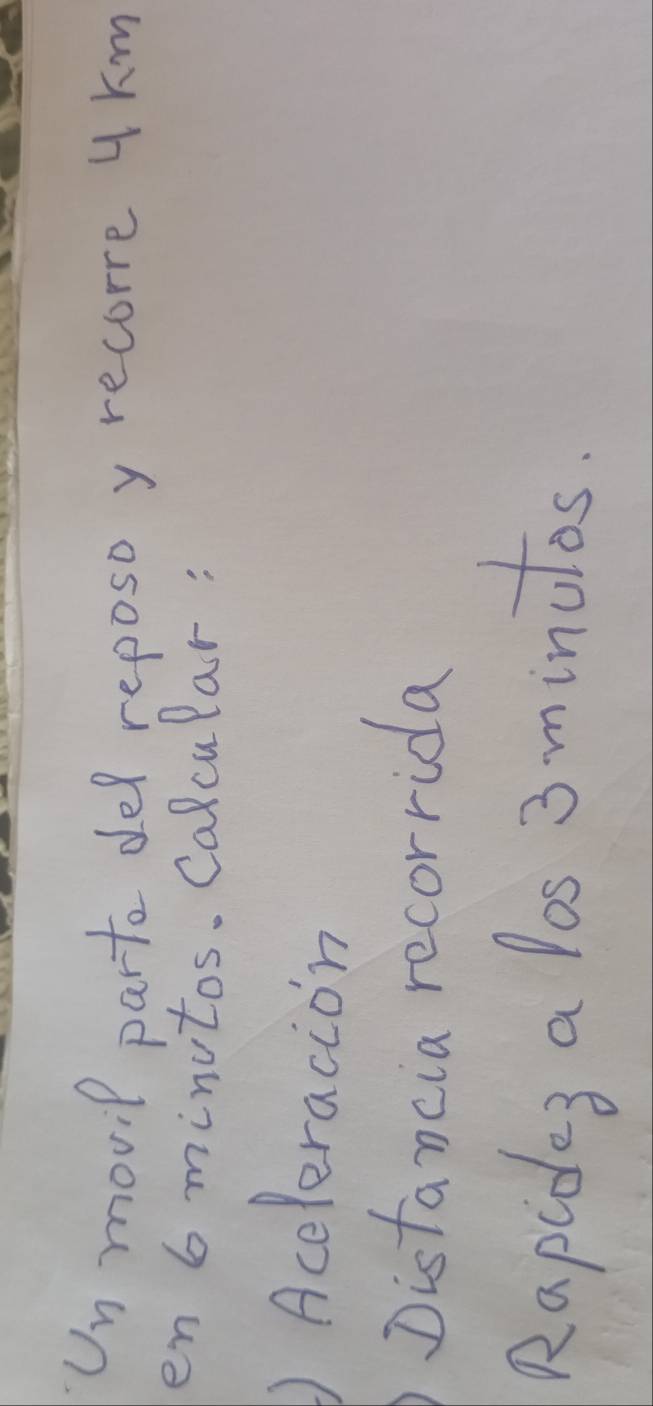 Un movil parte del reposo y recorre 4 km
en 6 minutos. Calcular:
) Aceleración
) Distancia recorrida
Rapidez a los 3 minutos.